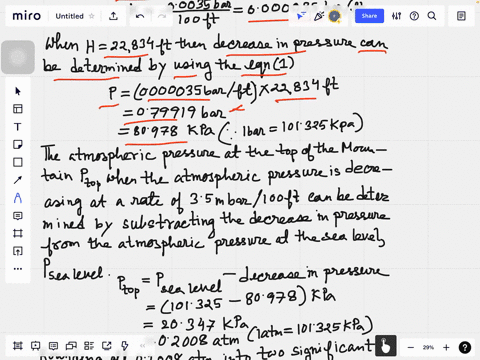 miro Untitled Share
0.0035bar = 0.0000
100ft
When H = 22,834 ft then decrease in pressure can
be determined by using the eqn(1)
P = (0000035bar/ft) × 22,834 ft
= 0.79919 bar
= 80.978 KPa (∵ 1bar = 101.325Kpa)
The atmospheric pressure at the top of the Moun-
tain Ptop when the atmospheric pressure is decre-
asing at a rate of 3.5mbar/100ft can be deter
mined by substracting the decrease in pressure
from the atmospheric pressure at the sea level,
Psea level.
Ptop = Psea level - decrease in pressure
= (101.325 - 80.978) KPa
= 20.347 KPa
= 0.2008 atm (1atm = 101.325 KPa)
0.2008 atm into two significant
29%